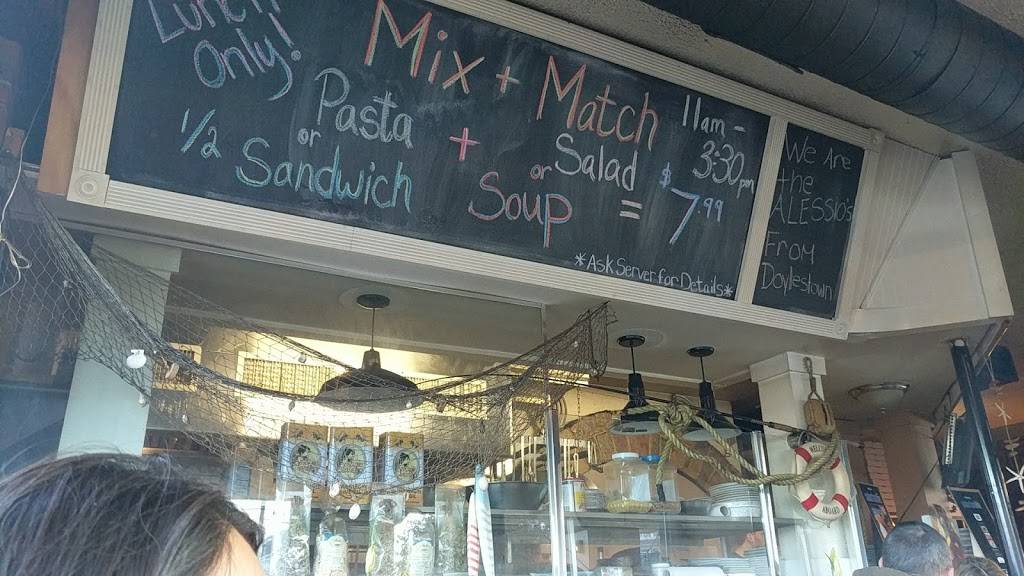 Lunch
Only!
Mix + Match
11am -
3:30pm
Pasta + Salad
or or
1/2 Sandwich Soup = $7.99
*Ask Server for Details*
We Are
the
ALESSIO's
From
Doylestown